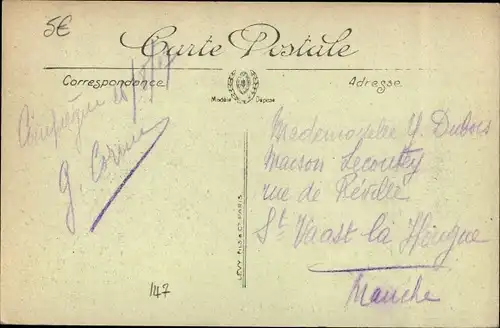 5€
Carte Postale
Correspondance
Adresse
Modèle Déposé
Compiègne
G.
Mademoiselle Y. Dubois
Maison Lecouttey
rue de Réville
St Vaast la Hougue
Manche
LÉVY FILS & Cie PARIS
147